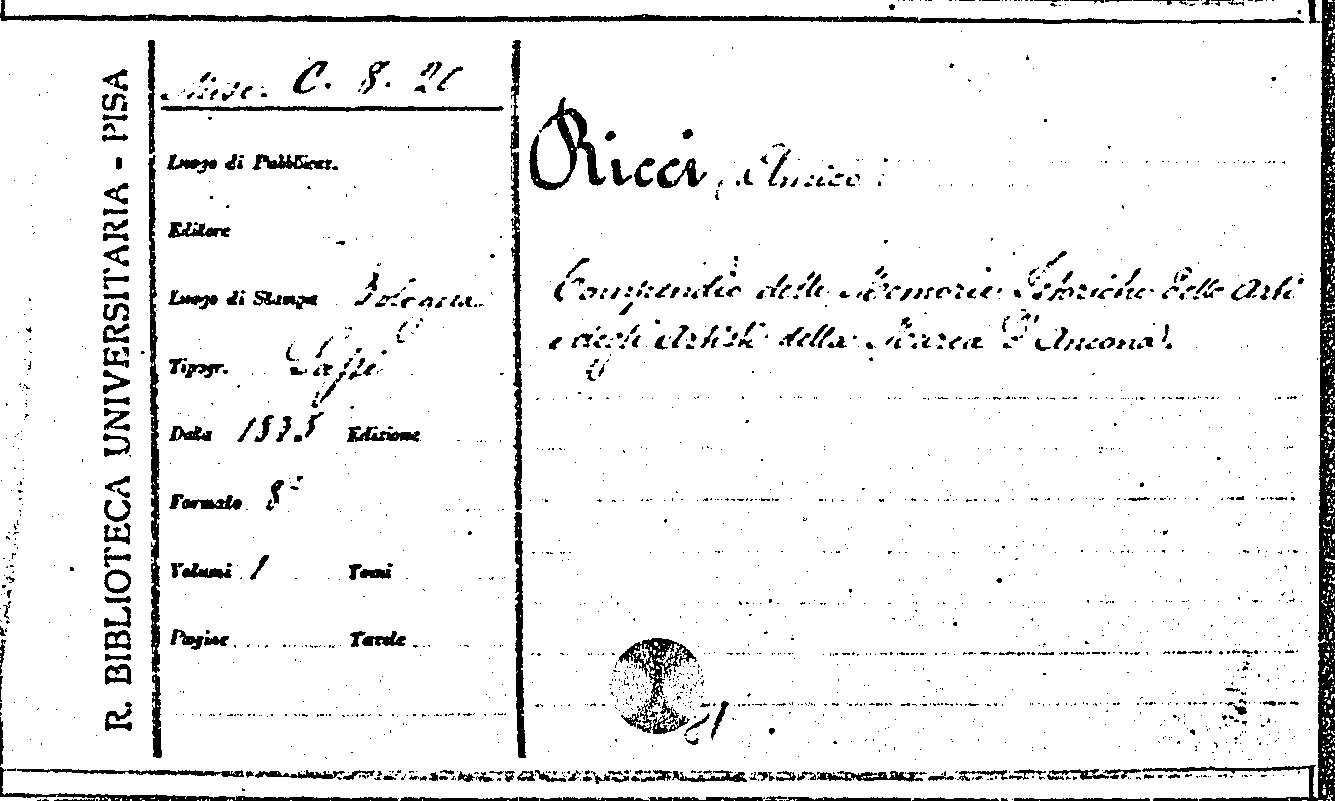 R. BIBLIOTECA UNIVERSITARIA - PISA
Misc. C. 8. 20
Luogo di Pubblicaz.
Editore
Luogo di Stampa Bologna
Tipogr. Sassi
Data 1835 Edizione
Formato 8º
Volumi 1 Tomi
Pagine Tavole
Ricci, Amico
Compendio delle Memorie Istoriche delle Arti
e degli Artisti della Marca d'Ancona.